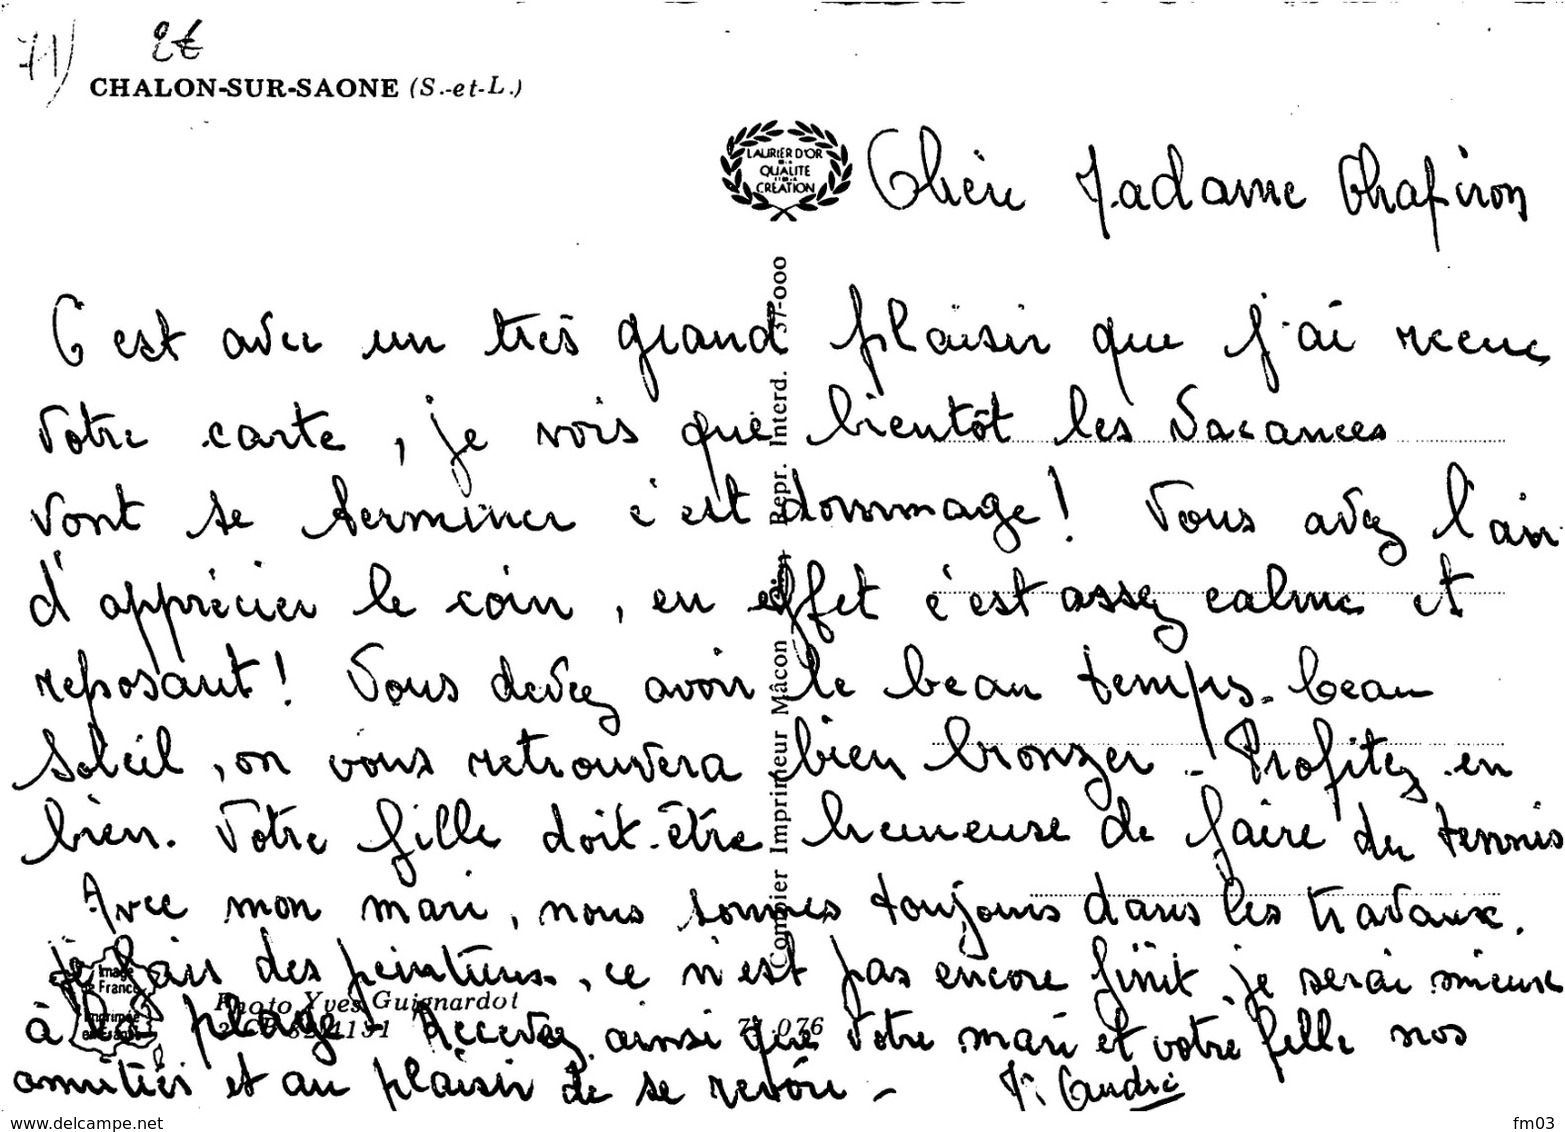 71) 2€
CHALON-SUR-SAONE (S.-et-L.)
LAURIER D'OR
QUALITE
CREATION
Chère Madame Chapiron
C'est avec un très grand plaisir que j'ai recue
votre carte, je vois que bientôt les vacances
vont se terminer c'est dommage! Vous avez l'air
d'apprécier le coin, en effet c'est assez calme et
reposant! Vous devez avoir le beau temps. beau
soleil, on vous retrouvera bien bronzer - Profitez en
bien. Votre fille doit-être heureuse de faire du tennis
Avec mon mari, nous sommes toujours dans les travaux.
je fais des peintures, ce n'est pas encore finit je serai mieux
à la plage! Recevez ainsi que votre mari et votre fille nos
amitiés et au plaisir de se revoir -
Combier Imprimeur Mâcon Repr. Interd. 37-000
Image
de France
Imprimée
en France
Photo Yves Guignardot
71 076
www.delcampe.net
fm03